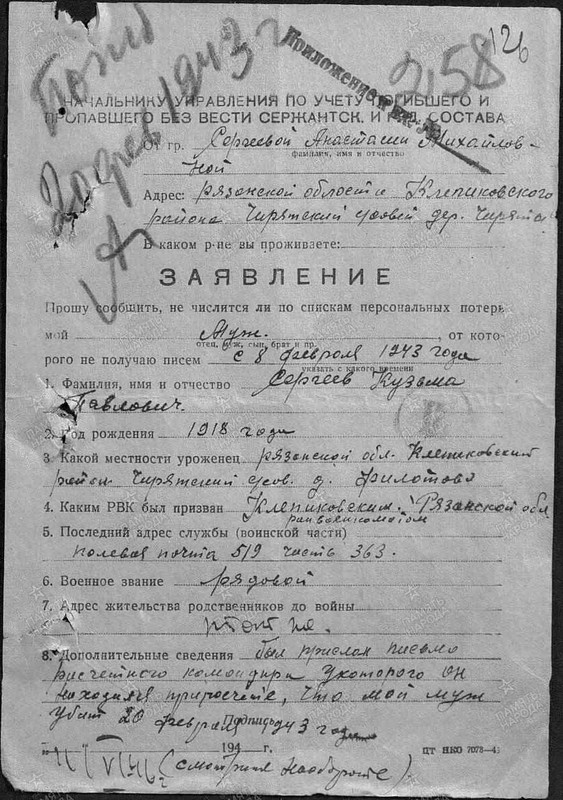 126
258
Погиб
20 фев 1943 г
Приложение к вх. №
НАЧАЛЬНИКУ УПРАВЛЕНИЯ ПО УЧЕТУ ПОГИБШЕГО И
ПРОПАВШЕГО БЕЗ ВЕСТИ СЕРЖАНТСК. И РЯД. СОСТАВА
От гр. Сергеевой Анастасии Михайлов-
фамилия, имя и отчество
ной
Адрес: Рязанской области Клепиковского
района Чирятский совет дер. Чирята
В каком р-не вы проживаете:
ЗАЯВЛЕНИЕ
Прошу сообщить, не числится ли по спискам персональных потерь
мой муж. , от кото-
отец, муж, сын, брат и пр.
рого не получаю писем с 8 февраля 1943 года
указать с какого времени
1. Фамилия, имя и отчество Сергеев Кузьма
Павлович.
2. Год рождения 1918 года
3. Какой местности уроженец рязанской обл. Клепиковский
район Чирятский сов. д. Филотово
4. Каким РВК был призван Клепиковским Рязанской обл
райвоенкоматом
5. Последний адрес службы (воинской части)
полевая почта 519 часть 363.
6. Военное звание рядовой
7. Адрес жительства родственников до войны
тот же.
8. Дополнительные сведения был прислан письмо
расчетного командира у которого он
находился, что мой муж
убит 20 февраля 1943 года
Подпись
" " 194 г.
ЦТ НКО 7078—4
(смотри на обороте).